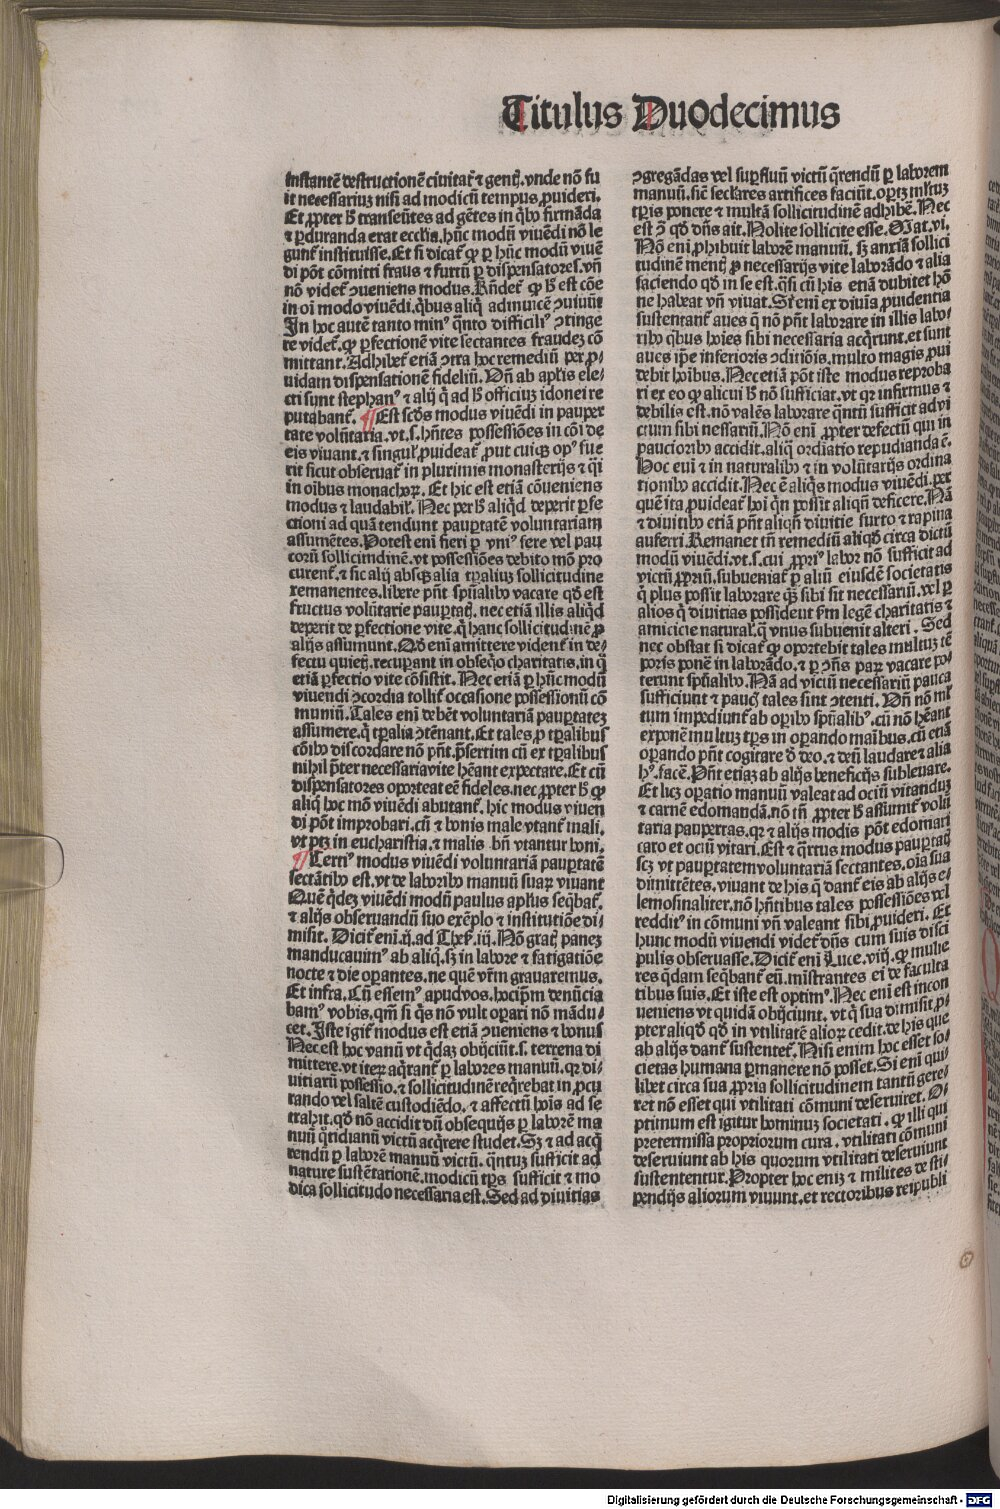 Titulus Duodecimus
instantē destructionē ciuitat᷒ ⁊ gent᷒. vnde nō fu
it necessariuz nisi ad modicū tempus ꝓuideri.
Et ꝓpter hͦ transeūtes ad gētes in qͥbꝰ firmāda
⁊ ꝑduranda erat eccl̄ia. hūc modū viuēdi nō le
gunt᷒ instituisse. Et si dicat᷒ ꝙ ꝑ hūc modū viuē
di pōt cōmitti fraus ⁊ furtū ꝑ dispensatores. vn̄
nō videt᷒ ꝯueniens modus. Rn̄det᷒ ꝙ hͦ est cōe
in oī modo viuēdi. qͥbus aliqͥ adinuicē ꝯuiuūt
In hoc autē tanto minꝰ qͣnto difficiliꝰ ꝯtinge
re videt᷒. ꝙ ꝑfectionē vite sectantes fraudez cō
mittant. Adhibet᷒ etiā ꝯtra hoc remediū per ꝓ/
uidam dispensationē fideliū. Vn̄ ab apl̄is ele/
cti sunt stephanꝰ ⁊ alij qͥ ad hͦ officiuz idonei re
putabant᷒. ¶ Est scd̄s modus viuēdi in pauper
tate volūtaria. vt. s. hn̄tes possessiōes in cōi de
eis viuant. ⁊ singul᷒ ꝓuideat᷒ ꝓut cuiqꝫ opꝰ fue
rit sicut obseruat᷒ in plurimis monasterijs ⁊ qͣi
in oībus monachoꝝ. Et hic est etiā cōueniens
modus ⁊ laudabil᷒. Nec per hͦ aliqͥd deperit ꝑfe
ctioni ad quā tendunt pauꝑtatē voluntariam
assumētes. Potest enī fieri ꝑ vniꝰ fere vel pau
corū sollicitudinē. vt possessiōes debito mō pro
curent᷒. ⁊ sic alij absqꝫ alia tꝑaliuz sollicitudine
remanentes. libere pn̄t spūalibꝰ vacare qd̄ est
fructus volūtarie pauꝑtat᷒. nec etiā illis aliqͥd
deperit de ꝑfectione vite. qͥ hanc sollicitudinē ꝓ
alijs assumunt. Qd̄ enī amittere vident᷒ in de/
fectu quiet᷒. recuꝑant in obseqͥo charitatis. in qͣ
etiā ꝑfectio vite cōsistit. Nec etiā ꝑ hūc modū
viuendi ꝯcordia tollit᷒ occasione possessionū cō
muniū. Tales enī debēt voluntariā pauꝑtatez
assumere. qͥ tꝑalia ꝯtēnant. Et tales ꝓ tꝑalibus
cōibꝰ discordare nō pn̄t. p̄sertim cū ex tꝑalibus
nihil p̄ter necessaria vite hēant expectare. Et cū
dispensatores oporteat eē fideles. nec ꝓpter hͦ ꝙ
aliqͥ hoc mō viuēdi abutant᷒. hic modus viuen
di pōt improbari. cū ⁊ bonis male vtant᷒ mali.
vt ptꝫ in eucharistia. ⁊ malis bn̄ vtantur boni.
¶ Tertiꝰ modus viuēdi voluntariā pauꝑtatē
sectātibꝰ est. vt de laboribꝰ manuū suaꝝ viuant
Quē qͥdez viuēdi modū paulus apl̄us seqͣbat᷒.
⁊ alijs obseruandū suo exēplo ⁊ institutiōe di/
misit. Dicit᷒ enī. ij. ad Thes̄. iij. Nō grat᷒ panez
manducauimꝰ ab aliqͦ. sꝫ in labore ⁊ fatigatiōe
nocte ⁊ die oꝑantes. ne quē vr̄m grauaremus.
Et infra. Cū essemꝰ apud vos. hoc ip̄m denūcia
bamꝰ vobis. qm̄ si qͥs nō vult oꝑari nō mādu/
cet. Iste igit᷒ modus est etiā ꝯueniens ⁊ bonus
Nec est hoc vanū vt qͥdaz obijciūt. s. terrena di
mittere. vt iteꝝ aqͥrant᷒ ꝑ labores manuū. qꝛ di/
uitiarū possessio. ⁊ sollicitudinē reqͥrebat in ꝓcu
rando vel saltē custodiēdo. ⁊ affectū hoīs ad se
trahit. qd̄ nō accidit dū obsequijs ꝑ laborē ma
nuū qͦtidianū victū acqͥrere studet. Sꝫ ⁊ ad acqͥ
rendū ꝑ laborē manuū victū. qͣntuz sufficit ad
nature sustētationē. modicū tꝑs sufficit ⁊ mo
dica sollicitudo necessaria est. Sed ad diuitias
ꝯgregādas vel suꝑfluū victū qͥrendū ꝑ laborem
manuū. sicut seclares artifices faciūt. oportꝫ multuz
tꝑis ponere ⁊ multā sollicitudinē adhibē. Nec
est ꝯͣ qd̄ dn̄s ait. Nolite solliciti esse. Mat. vi.
Nō enī ꝓhibuit laborē manuū. sꝫ anxiā sollici
tudinē ment᷒ ꝓ necessarijs vite laborādo ⁊ alia
faciendo qd̄ in se est. qͣsi cū his etiā dubitet hō
ne habeat vn̄ viuat. Sicut enī ex diuīa ꝓuidentia
sustentant᷒ aues qͥ nō pn̄t laborare in illis labo/
ribꝰ qͥbus hoīes sibi necessaria acqͥrunt. et sunt
aues ip̄e inferioris ꝯditiōis. multo magis ꝓui
debit hoībus. Nec etiā pōt iste modus reproba
ri ex eo ꝙ alicui hͦ nō sufficiat. vt qꝛ infirmus ⁊
debilis est. nō valēs laborare qͣntū sufficit ad vi
ctum sibi nessariū. Nō enī ꝓpter defectū qui in
paucioribꝰ accidit. aliqͣ ordiatio repudianda ē.
Hoc enī ⁊ in naturalibꝰ ⁊ in volūtarijs ordina
tionibꝰ accidit. Nec ē aliqͥs modus viuēdi. per
quē ita ꝓuideat᷒ hoī qͥn possit aliqn̄ deficere. Nā
⁊ diuitibꝰ etiā pn̄t aliqn̄ diuitie furto ⁊ rapina
auferri. Remanet tn̄ remediū aliqd̄ circa dictū
modū viuēdi. vt. s. cui ꝓpriꝰ labor nō sufficit ad
victū ꝓpriū. subueniat᷒ ꝑ aliū eiusdē societatis
qͥ plus possit laborare qͣꝫ sibi sit necessariū. vel ꝑ
alios qͥ diuitias possident f̄m legē charitatis ⁊
amicicie natural᷒. qͣ vnus subuenit alteri. Sed
nec obstat si dicat᷒ ꝙ oportebit tales multuz tē
poris ponē in laborādo. ⁊ ꝑ ꝯn̄s paꝝ vacare po/
terunt spūalibꝰ. Nā ad victū necessariū pauca
sufficiunt ⁊ pauc᷒ tales sint ꝯtenti. Vn̄ nō ml̄
tum impediunt᷒ ab oꝑibꝰ spūalibꝰ. cū nō hēant
exponē multuz tꝑs in oꝑando māibus. cū etiā
oꝑando pn̄t cogitare d̄ deo. ⁊ deū laudare ⁊ alia
hꝰ. facē. Pn̄t etiaz ab alijs beneficijs subleuare.
Et licꝫ oꝑatio manuū valeat ad ociū vitanduz
⁊ carnē edomandā. nō tn̄ ꝓpter hͦ assumit᷒ volū
taria paupertas. qꝛ ⁊ alijs modis pōt edomari
caro et ociū vitari. Est ⁊ qͣrtus modus pauꝑtat᷒
scꝫ vt pauꝑtatem voluntariā sectantes. oīa sua
dimittētes. viuant de his qͥ dant᷒ eis ab alijs e/
lemosinaliter. nō hn̄tibus tales possessiōes vel
redditꝰ in cōmuni vn̄ valeant sibi ꝓuideri. Et
hunc modū viuendi videt᷒ dn̄s cum suis disci
pulis obseruasse. Dicit᷒ enī Luce. viij. ꝙ mulie
res qͥdam seqͣbant᷒ eū. mīstrantes ei de faculta
tibus suis. Et iste est optimꝰ. Nec enī est incon
ueniens vt quidā obijciunt. vt qͥ sua dimisit. ꝓ/
pter aliqd̄ qd̄ in vtilitatē alioꝝ cedit. de his que
ab alijs dant᷒ sustentet᷒. Nisi enim hoc esset so/
cietas humana ꝑmanere nō posset. Si enī qui/
libet circa sua ꝓpria sollicitudinem tantū gere/
ret nō esset qui vtilitati cōmuni deseruiret. O/
ptimum est igitur hominuz societati. ꝙ illi qui
pretermissa propriorum cura. vtilitati cōmuni
deseruiunt ab his quorum vtilitati deseruiunt
sustententur. Propter hoc enīz ⁊ milites de sti/
pendijs aliorum viuunt. et rectoribus reipubli
Digitalisierung gefördert durch die Deutsche Forschungsgemeinschaft - DFG